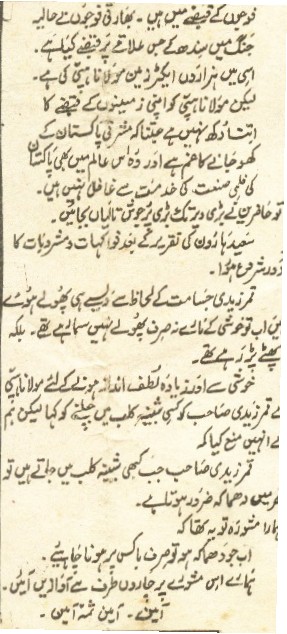 فوجوں کے قبضے میں ہیں۔ بھارتی فوجوں نے حالیہ
جنگ میں سندھ کے جس علاقے پر قبضے کیا ہے۔
اسی میں ہزاروں ایکڑ زمین مولانا ہپّی کی ہے۔
لیکن مولانا ہپّی کو اپنی زمینوں کے قبضے کا
اتنا دکھ نہیں ہے جتنا کہ مشرقی پاکستان کے
کھو جانے کا غم ہے اور وہ اس عالم میں بھی پاکستان
کی فلمی صنعت کی خدمت سے غافل نہیں ہیں۔
تو حاضرین نے بڑی دیر تک بڑی پُرجوش تالیاں بجائیں۔
سعید ہارون کی تقریر کے بعد فواکہات و مشروبات کا
دور شروع ہوا۔
قمر زیدی جسامت کے لحاظ سے ویسے ہی پھولے ہوئے
ہیں اب تو خوشی کے مارے نہ صرف پھولے نہیں سما رہے تھے۔ بلکہ
پھٹے پڑ رہے تھے۔
خوشی سے اور زیادہ لطف انداز ہونے کے لئے مولانا ہپّی
نے قمر زیدی صاحب کو کسی شبینہ کلب میں چلنے کو کہا لیکن ہم
نے انہیں منع کیا کہ
قمر زیدی صاحب جب کبھی شبینہ کلب میں جاتے ہیں تو
شہر میں دھماکہ ضرور ہوتا ہے۔
ہمارا مشورہ تو یہ تھا کہ
اب جو دھماکہ ہو تو صرف باکس پر ہونا چاہیئے۔
ہمارے اس مشورے پر چاروں طرف سے آوازیں آئیں۔
آمین۔ آمین ثمّہ آمین۔